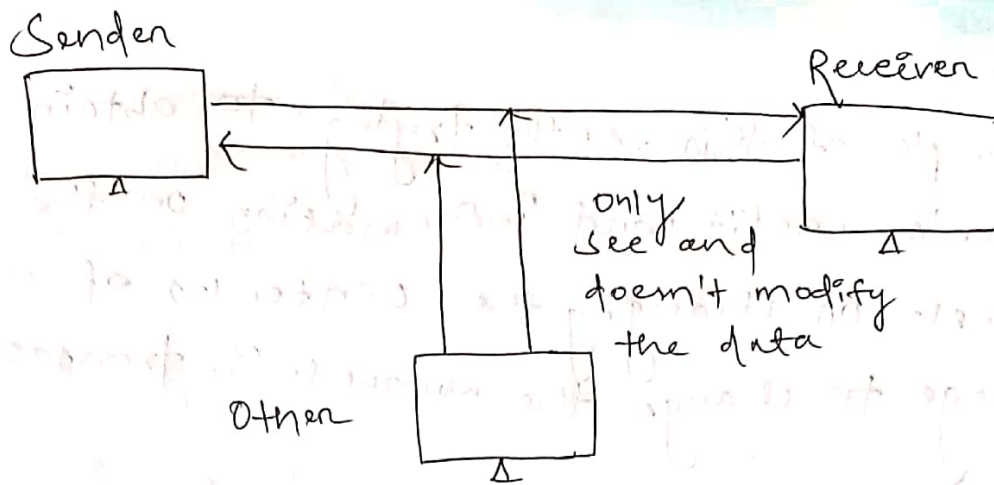 Sender
Receiver
only
see and
doesn't modify
the data
Other